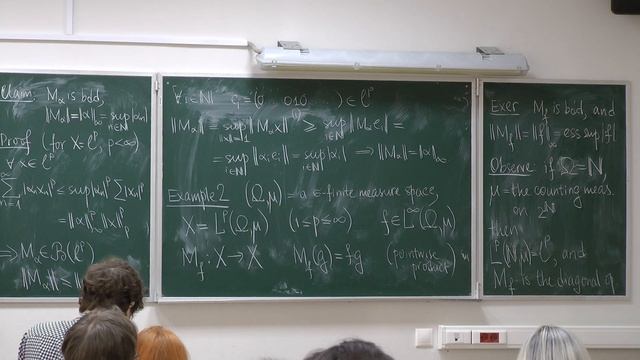 Claim: Mα is bdd,
‖Mα‖=‖α‖∞=sup|αn|
n∈N
Proof (for X=ℓᵖ, p<∞)
∀x∈ℓᵖ
∞
∑|αnxn|ᵖ ≤ sup|αn|ᵖ ∑|xn|ᵖ
n=1
=‖α‖ᵖ∞‖x‖ᵖp
⇒ Mα∈B(ℓᵖ)
‖Mα‖≤
∀i∈N ei=(0 010 ) ∈ ℓᵖ
‖Mα‖ = sup‖Mαx‖ ≥ sup‖Mαei‖ =
‖x‖=1 i∈N
= sup‖αiei‖ = sup|αi| ⇒ ‖Mα‖=‖α‖∞
i∈N i∈N
Example 2 (Ω,μ) = a σ-finite measure space,
X = Lᵖ(Ω,μ) (1≤p≤∞) f∈L∞(Ω,μ)
Mf: X→X Mf(g)=fg (pointwise
product)
Exer Mf is bdd, and
‖Mf‖=‖f‖∞=ess sup|f|
Observe: if Ω=N,
μ=the counting meas.
on 2ᴺ
then
Lᵖ(N,μ)=ℓᵖ, and
Mf is the diagonal op